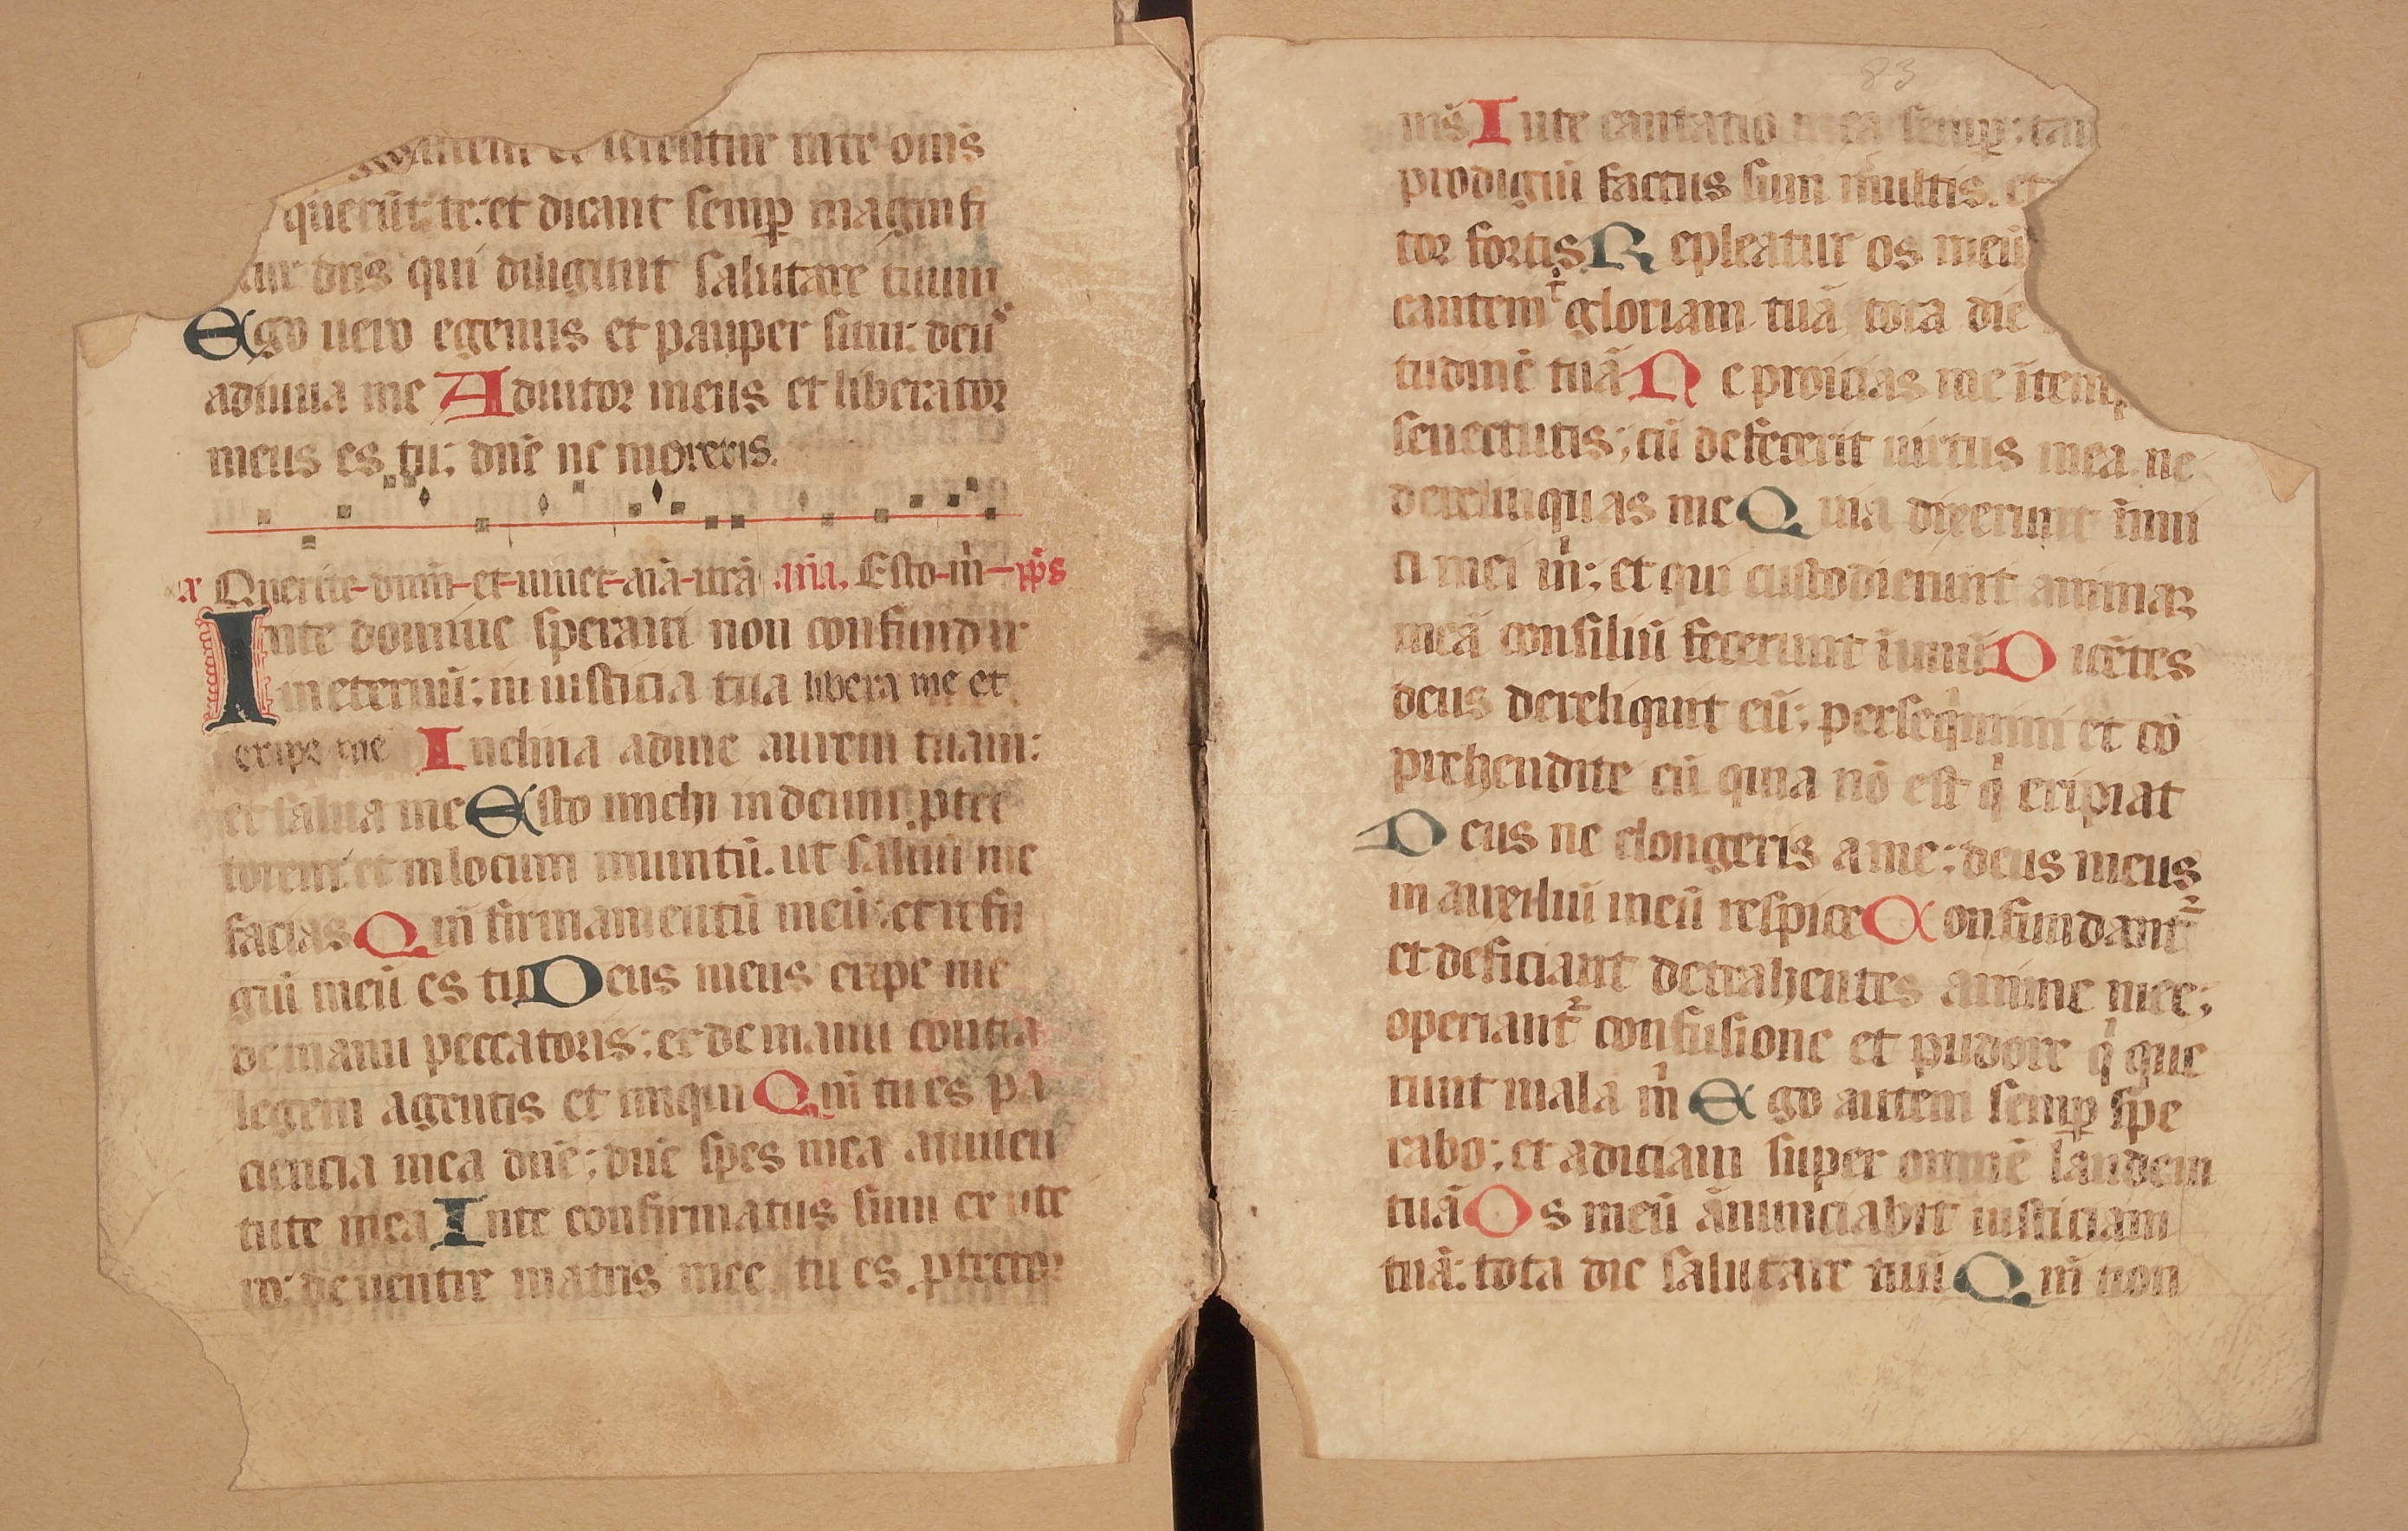 et letentur inte om̄s
querūt te: et dicant semp̱ magnifi
tur dn̄s qui diligunt salutare tuum
Ego uero egenus et pauper sum: deus
adiuua me Adiutor meus et liberator
meus es tu: dn̄e ne moreris.
Querite dnm̄ et uiuet aīa ur̄a Esto m̄ ps̄
Inte domine speraui non confundar
in eternū: in iusticia tua libera me et
eripe me Inclina adme aurem tuam:
et salua me Esto michi in deum ptec
torem: et in locum munitū. ut saluū me
facias Qm̄ firmamentū meū: et refu
giū meū es tu Deus meus eripe me
de manu peccatoris: et de manu contra
legem agentis et iniqui Qm̄ tu es pa
ciencia mea dn̄e: dn̄e spes mea aiuuen
tute mea Inte confirmatus sum ex ute
ro: de uentre matris mee tu es ptector
83
m̄s Inte cantatio mea semp̱: tan
prodigiū factus sum multis. et
tor fortis Repleatur os meū
cantem gloriam tuā tota die
tudinē tuā Ne proicias me ītemp̱
senectutis: cū defecerit uirtus mea ne
derelinquas me Quia dixerunt inimi
ci mei m̄: et qui custodierunt animaꝝ
meā consiliū fecerunt ī unū Dicētes
deus dereliquit eū: persequimini et cō
prehendite eū quia nō est q̇ eripiat
Deus ne elongeris a me: deus meus
in auxiliū meū respice Confundant᷑
et deficiant detrahentes anime mee:
operiant᷑ confusione et pudore q̇ que
runt mala m̄ Ego autem semp̱ spe
rabo: et adiciam super omnē laudem
tuā Os meū ānunciabit iusticiam
tuā: tota die salutare tuū Qm̄ non